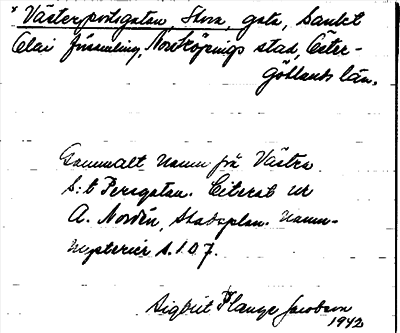 x Västerportsgatan, Stora, gata, Sankt
Olai församling, Norrköpings stad, Öster-
götlands län.
Gammalt namn på Västra
S:t Persgatan. Citerat ur
A. Nordén, Stadsplan. Namn-
mysterier s. 107.
Sigbrit Plænge Jacobson
1942